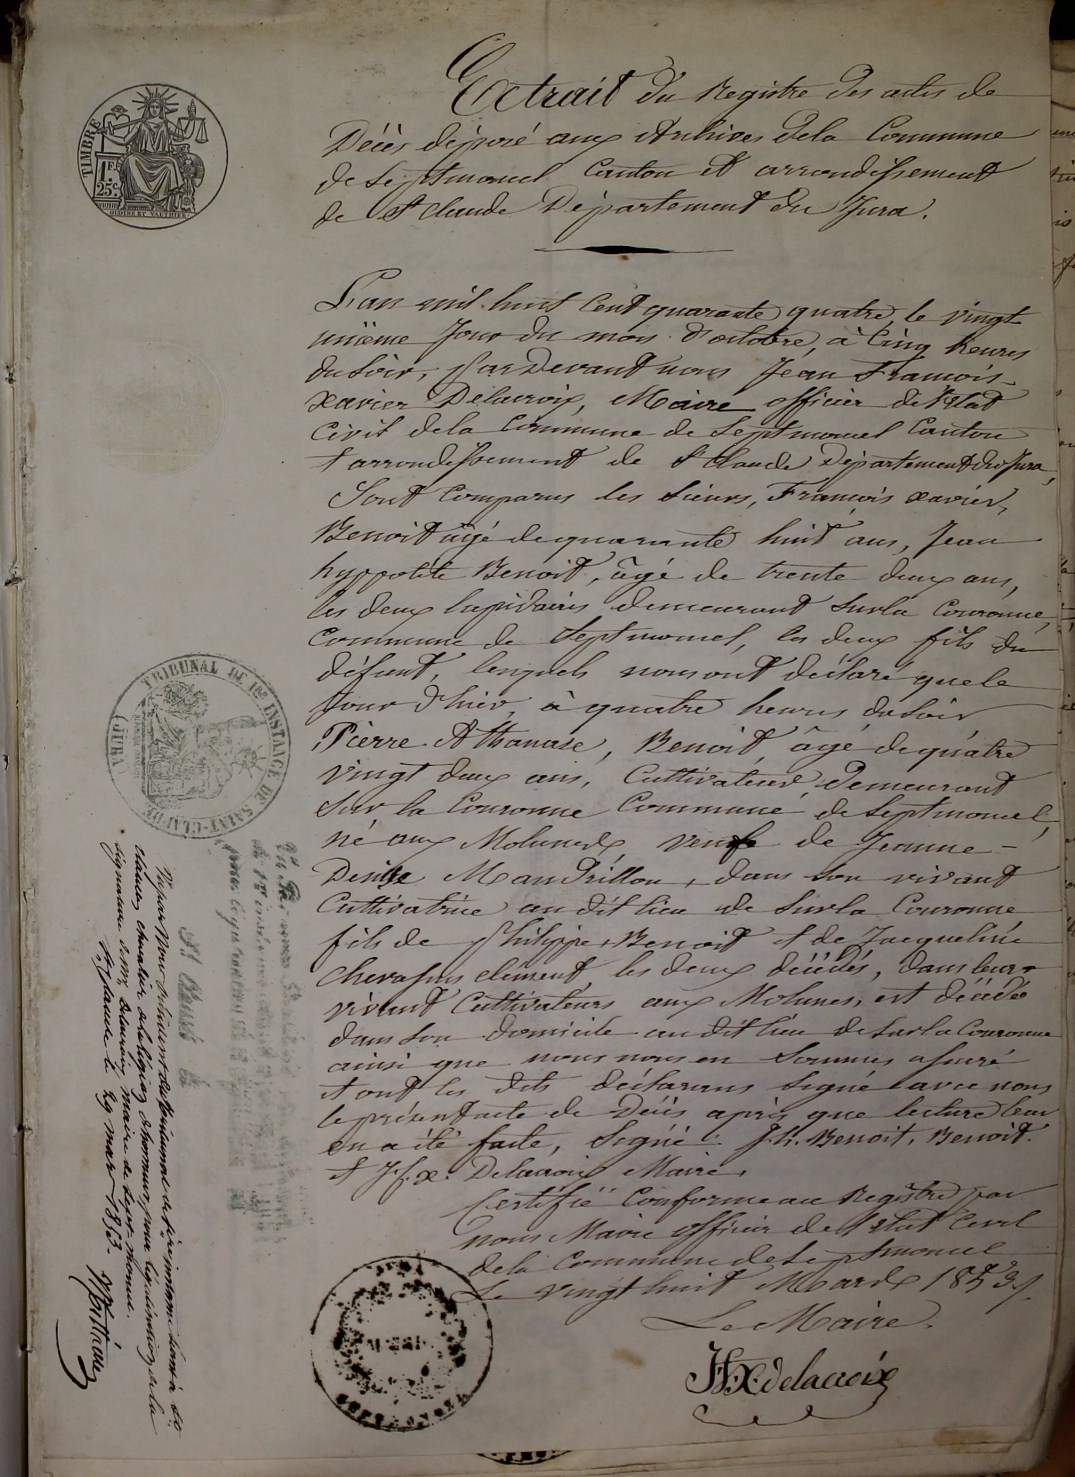 Extrait du Registre des actes de
Décès déposé aux Archives de la Commune
de Septmoncel Canton et arrondissement
de St Claude Département du Jura.
L'an mil huit cent quarante quatre, le vingt
unième jour du mois d'octobre, à Cinq heures
du soir, Par devant nous Jean François
xavier Delacroix, Maire officier de l'état
Civil de la Commune de Septmoncel Canton
& arrondissement de St Claude Département du Jura,
Sont Comparus les Sieurs, François xavier,
Benoit âgé de quarante huit ans, Jean
hyppolite Benoit, âgé de trente deux ans,
les deux lapidairis demeurant Surla Couronne,
Commune de Septmoncel, les deux fils du
défunt, lesquels nous ont déclaré que le
Jour d'hier, à quatre heures du soir
Pierre Athanase, Benoit, âgé de quatre
vingt deux ans, Cultivateur, Demeurant
Sur la Couronne Commune de Septmoncel,
né aux Molunes, veuf de Jeanne-
Denise Mandrillon, dans son vivant
Cultivatrice au dit lieu de Surla Couronne
fils de Philippe Benoit & de Jacqueline
Chevassus clément, les deux décédés, dans leur
vivant Cultivateurs aux Molunes, est décédé
dans son domicile au dit lieu de Surla Couronne
ainsi que nous nous en Sommes assuré
& ont les dits déclarans Signé avec nous
le présent acte de Décès après que lecture leur
en a été faite, Signé: J.h. Benoit, Benoit.
& J.f.x. Delacroix Maire.
Certifié Conforme au Registre par
nous Maire officier de l'état Civil
de la Commune de Septmoncel
Le vingt huit Mars 1853.
Le Maire.
JFX. delacroix
TIMBRE
1 F. 25 c.
TRIBUNAL DE 1RE INSTANCE DE SAINT-CLAUDE
(JURA)
Vu par Nous Président du tribunal de 1ère instance séant à St
Claude, chevalier de la légion d'honneur, pour législation de la
signature de Mr. Delacroix maire de Sept-moncel.
St. Claude le 29 mars 1853.
JURA